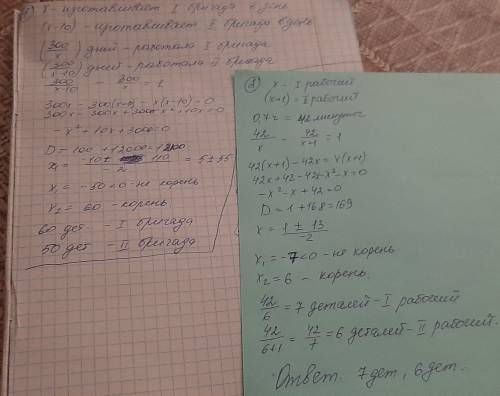 1) x - изготавливает I бригада в день
(x-10) - изготавливает II бригада в день
(300/x) дней - работала I бригада
(300/x-10) дней - работала II бригада
300/x-10 - 300/x = 1
300x - 300(x-10) - x(x-10) = 0
300x - 300x + 3000 - x² + 10x = 0
-x² + 10x + 3000 = 0
D = 100 + 12000 = 12100
x₁ = -10 ± 110 / -2 = 5 ± 55
x₁ = -50 < 0 - не корень
x₂ = 60 - корень
60 дет - I бригада
50 дет - II бригада
2) x - I рабочий
(x+1) = II рабочий
0,7 ч = 42 минуты
42/x - 42/x+1 = 1
42(x+1) - 42x = x(x+1)
42x + 42 - 42x - x² - x = 0
-x² - x + 42 = 0
D = 1 + 168 = 169
x = 1 ± 13 / -2
x₁ = -7 < 0 - не корень
x₂ = 6 - корень.
42/6 = 7 деталей - I рабочий
42/6+1 = 42/7 = 6 деталей - II рабочий.
Ответ. 7 дет, 6 дет.